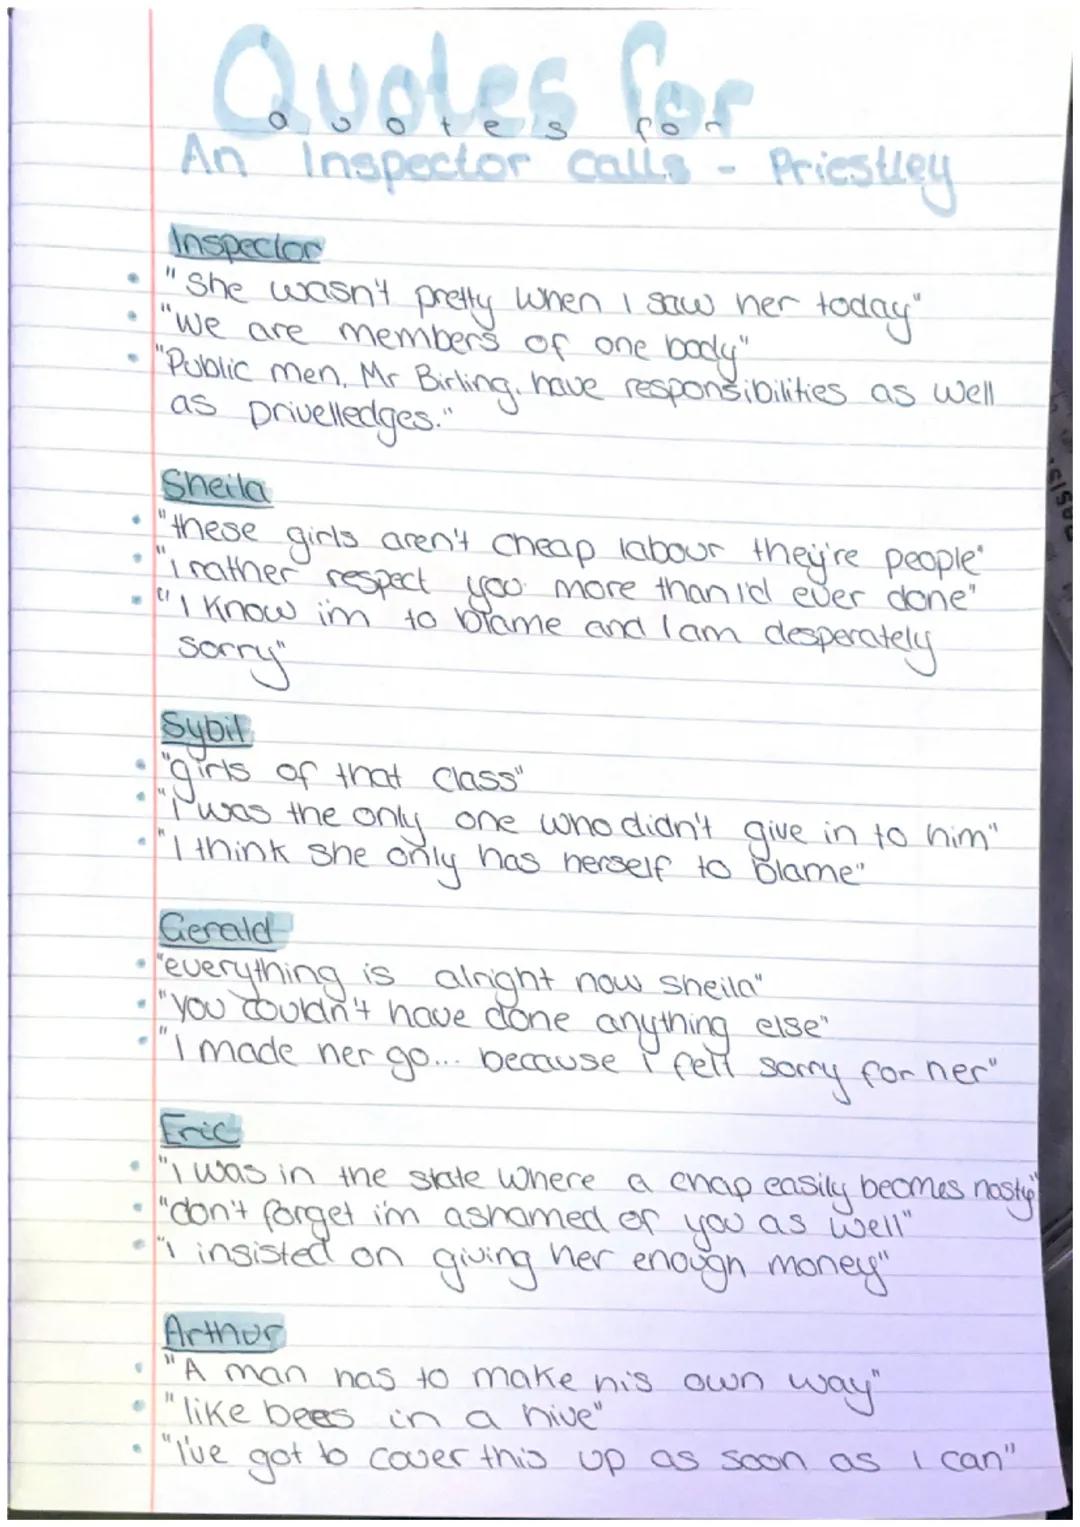 Quotes for
Quotes for
An Inspector calls - Priestley
Inspector
• "She wasn't pretty when I saw her today"
• "We are members of one body"
• "Public men, Mr Birling, have responsibilities as well
as privelledges."
Sheila
• "these girls aren't cheap labour they're people"
• "i rather respect you more than i'd ever done"
• "I know im to blame and I am desperately
sorry"
Sybil
• "girls of that class"
• "I was the only one who didn't give in to him"
• "I think she only has herself to blame"
Gerald
• "everything is alright now sheila"
• "you couldn't have done anything else"
• "I made her go... because i felt sorry for her"
Eric
• "i was in the state where a chap easily becomes nasty"
• "don't forget i'm ashamed of you as well"
• "i insisted on giving her enough money"
Arthur
• "A man has to make his own way"
• "like bees in a hive"
• "i've got to cover this up as soon as i can"